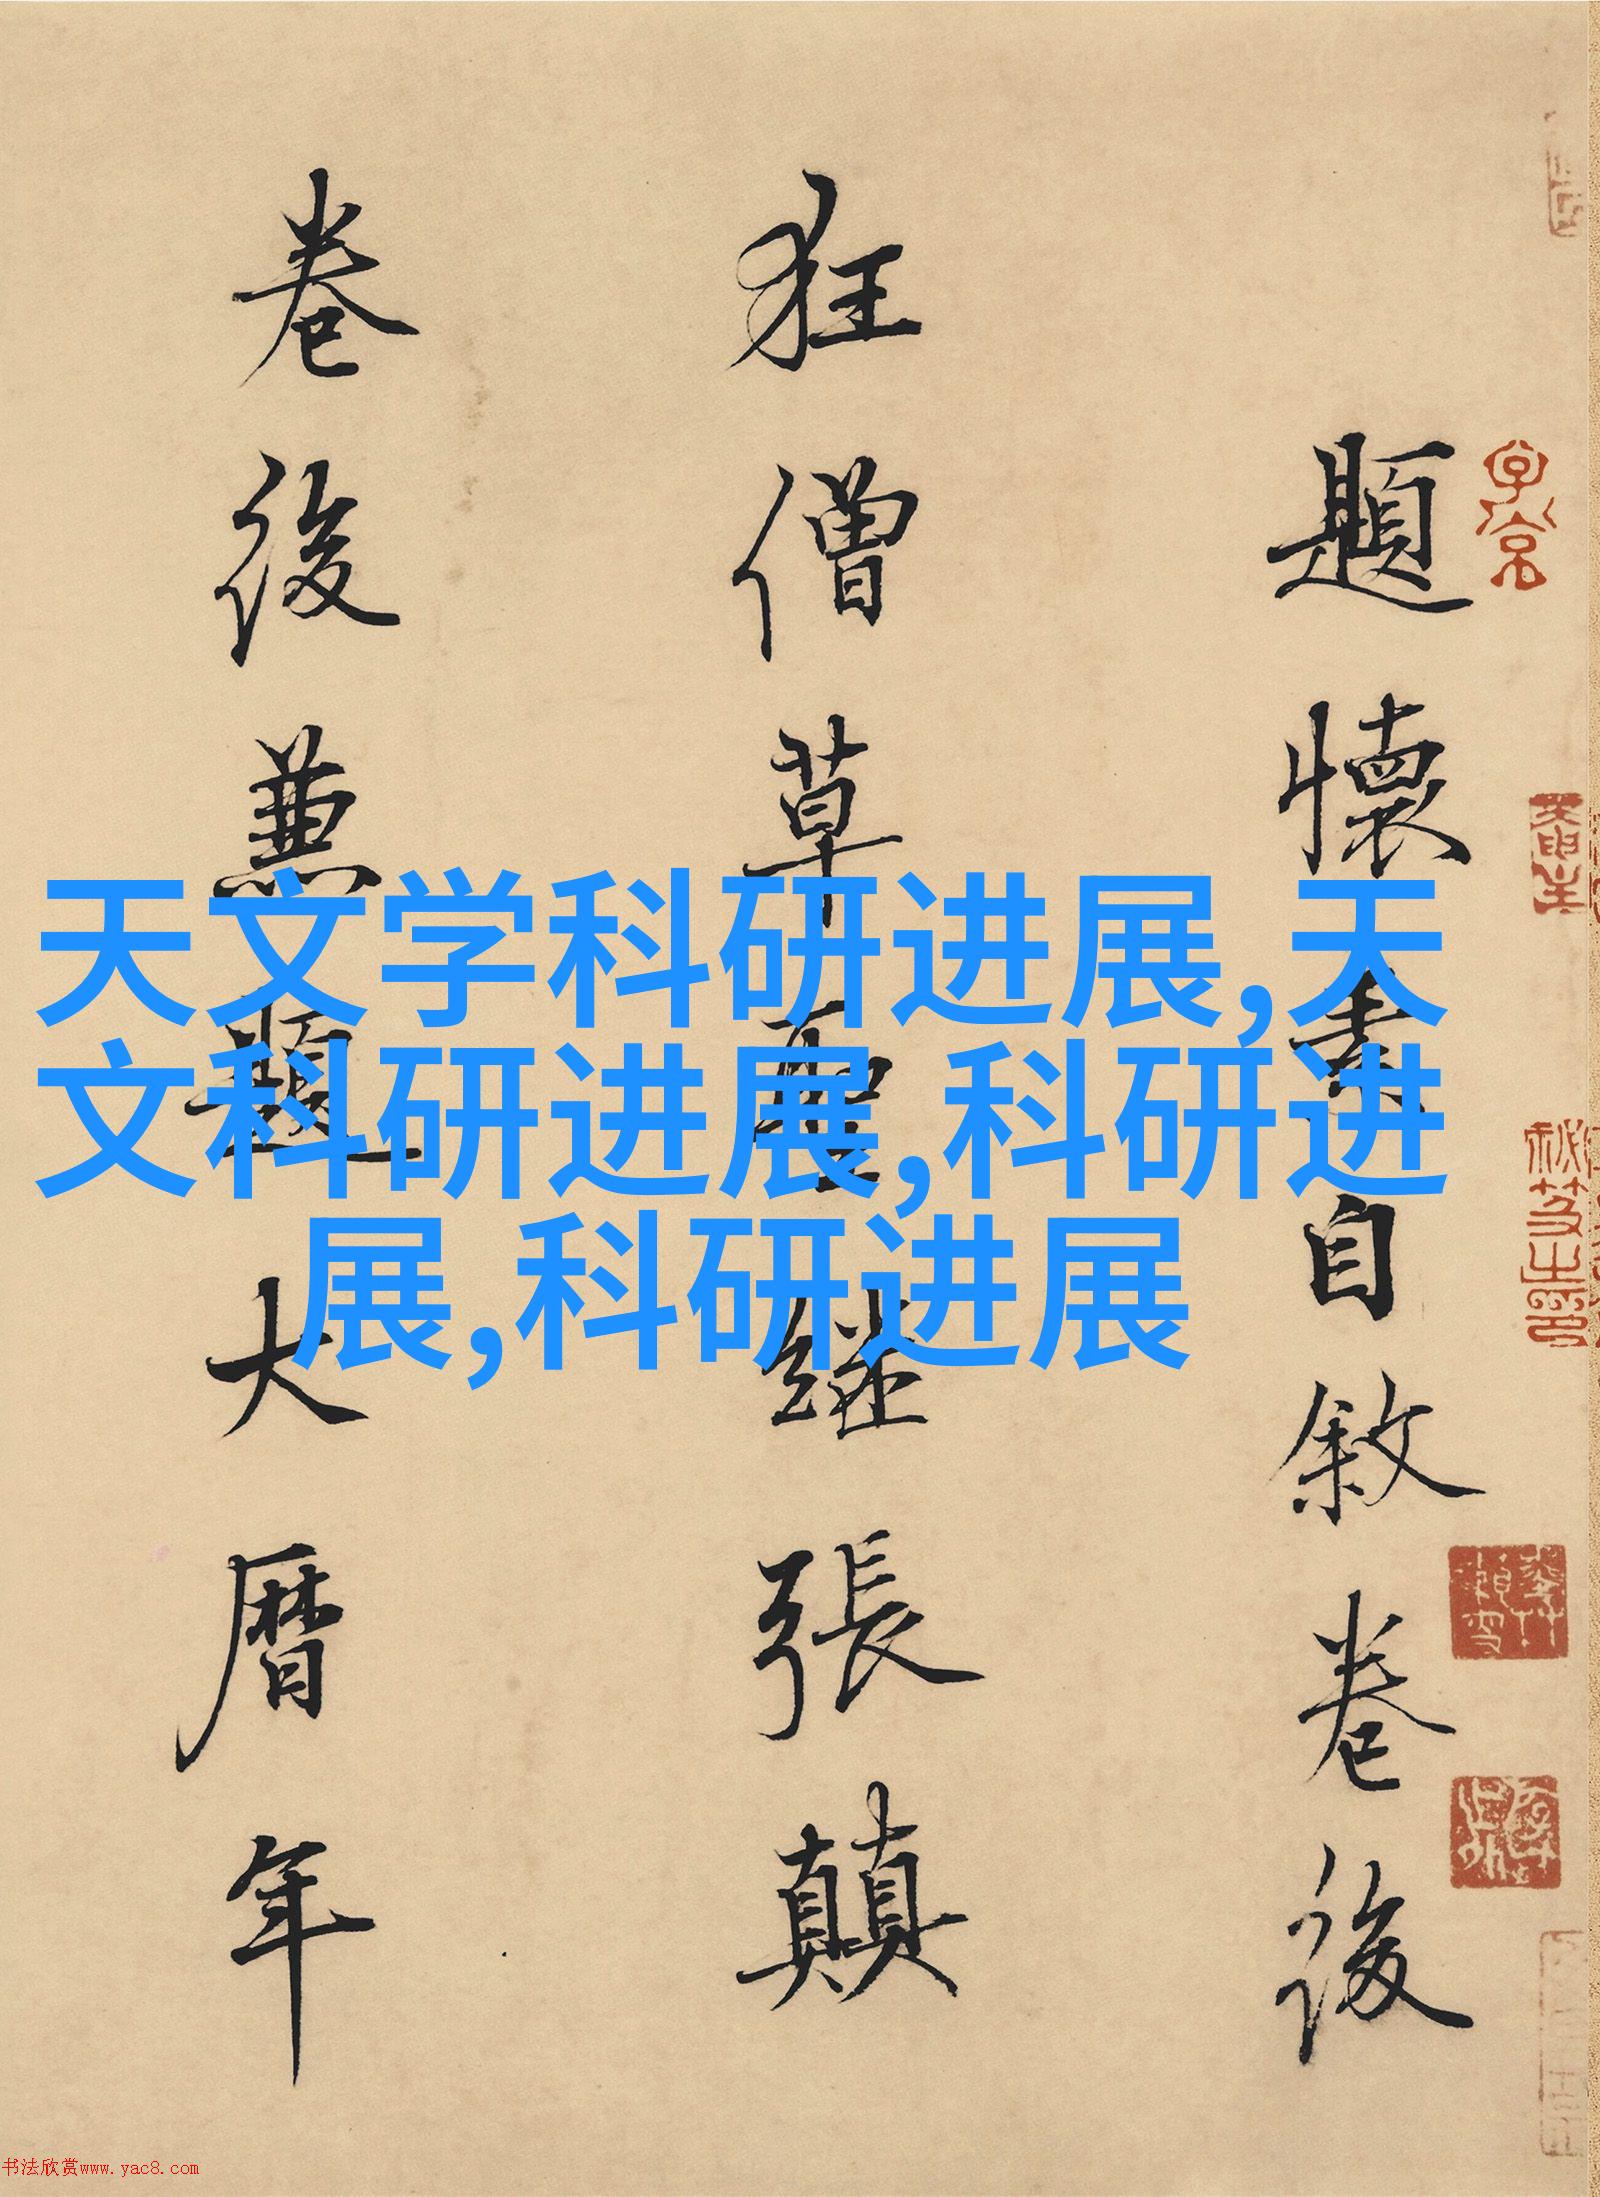 題懷素自敘卷後
狂僧草聖继張顛
卷後兼題大曆年
天文学科研进展,天
文科研进展,科研进
展,科研进展
书法欣赏www.yac8.com